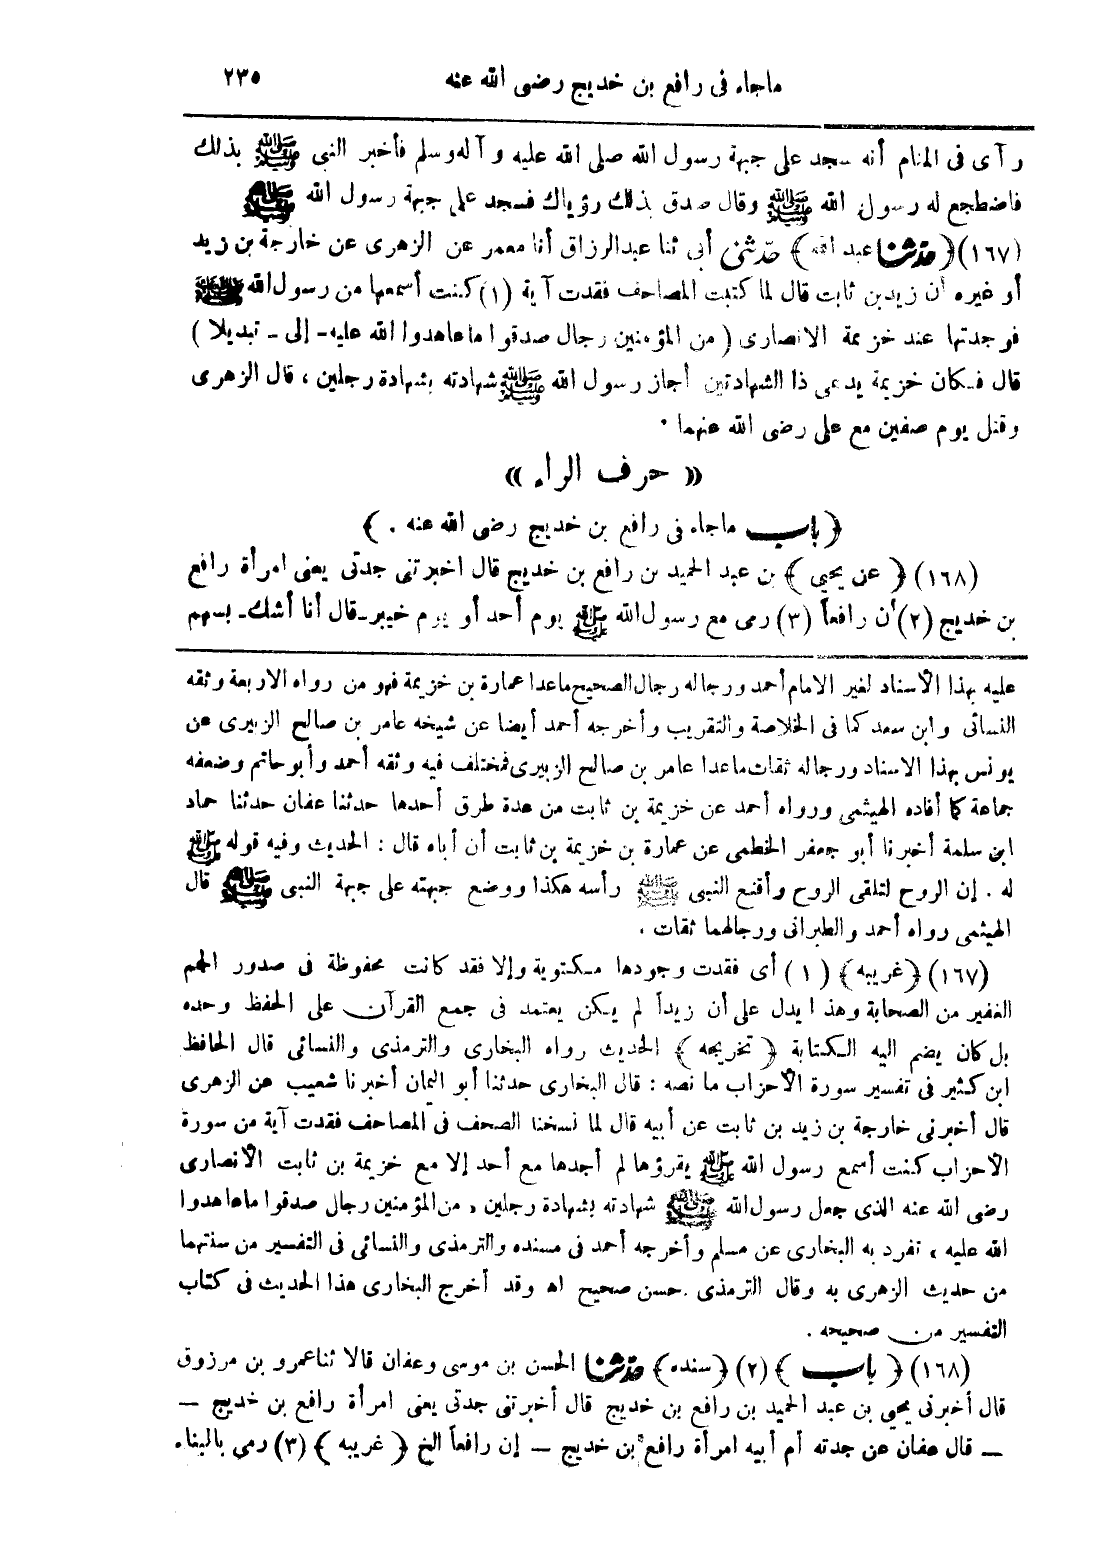 ماجاء فى رافع بن خديج رضى الله عنه ٢٣٥
رآى فى المنام أنه سجد على جبهة رسول الله صلى الله عليه وآله وسلم فأخبر النبى ﷺ بذلك
فاضطجع له رسول الله ﷺ وقال صدق بذلك رؤياك فسجد على جبهة رسول الله ﷺ
(١٦٧) ﴿حدثنا عبد الله﴾ حدثنى أبى ثنا عبد الرزاق أنا معمر عن الزهرى عن خارجة بن زيد
أو غيره أن زيد بن ثابت قال لما كتبت المصاحف فقدت آية (١) كنت أسمعها من رسول الله ﷺ
فوجدتها عند خزيمة الانصارى (من المؤمنين رجال صدقوا ما عاهدوا الله عليه - إلى - تبديلا)
قال فكان خزيمة يدعى ذا الشهادتين أجاز رسول الله ﷺ شهادته بشهادة رجلين ، قال الزهرى
وقتل يوم صفين مع على رضى الله عنهما .
« حرف الراء »
﴿ باب ماجاء فى رافع بن خديج رضى الله عنه . ﴾
(١٦٨) ﴿ عن يحيي ﴾ بن عبد الحميد بن رافع بن خديج قال اخبرتنى جدتى يعنى امرأة رافع
بن خديج (٢) أن رافعاً (٣) رمى مع رسول الله ﷺ يوم أحد أو يوم خيبر - قال أنا أشك - بسهم
عليه بهذا الأسناد لغير الامام أحمد ورجاله رجال الصحيح ماعدا عمارة بن خزيمة فهو من رواه الاربعة وثقه
النسائى وابن سعد كما فى الخلاصة والتقريب وأخرجه أحمد أيضا عن شيخه عامر بن صالح الزبيرى عن
يونس بهذا الاسناد ورجاله ثقات ماعدا عامر بن صالح الزبيرى فمختلف فيه وثقه أحمد وأبو حاتم وضعفه
جماعة كما أفاده الهيثمى ورواه أحمد عن خزيمة بن ثابت من عدة طرق أحدها حدثنا عفان حدثنا حماد
ابن سلمة أخبرنا أبو جعفر الخطمى عن عمارة بن خزيمة بن ثابت أن أباه قال : الحديث وفيه قوله ﷺ
له . إن الروح لتلقى الروح وأقنع النبى ﷺ رأسه هكذا ووضع جبهته على جبهة النبى ﷺ قال
الهيثمى رواه أحمد والطبرانى ورجالهما ثقات .
(١٦٧) ﴿غريبه﴾ (١) أى فقدت وجودها مكتوبة وإلا فقد كانت محفوظة فى صدور الجم
الغفير من الصحابة وهذا يدل على أن زيداً لم يكن يعتمد فى جمع القرآن على الحفظ وحده
بل كان يضم اليه الكتابة ﴿ تخريجه ﴾ الحديث رواه البخارى والترمذى والنسائى قال الحافظ
ابن كثير فى تفسير سورة الأحزاب ما نصه : قال البخارى حدثنا أبو اليمان أخبرنا شعيب عن الزهرى
قال أخبرنى خارجة بن زيد بن ثابت عن أبيه قال لما نسخنا الصحف فى المصاحف فقدت آية من سورة
الأحزاب كنت أسمع رسول الله ﷺ يقرؤها لم أجدها مع أحد إلا مع خزيمة بن ثابت الأنصارى
رضى الله عنه الذى جعل رسول الله ﷺ شهادته بشهادة رجلين ، من المؤمنين رجال صدقوا ما عاهدوا
الله عليه ، تفرد به البخارى عن مسلم وأخرجه أحمد فى مسنده والترمذى والنسائى فى التفسير من سنتهما
من حديث الزهرى به وقال الترمذى حسن صحيح اه وقد أخرج البخارى هذا الحديث فى كتاب
التفسير من صحيحه .
(١٦٨) ﴿ باب ﴾ (٢) ﴿سنده﴾ حدثنا الحسن بن موسى وعفان قالا ثنا عمرو بن مرزوق
قال أخبرنى يحيي بن عبد الحميد بن رافع بن خديج قال أخبرتنى جدتى يعنى امرأة رافع بن خديج —
— قال عفان عن جدته أم أبيه امرأة رافع بن خديج — إن رافعاً الخ ﴿ غريبه ﴾ (٣) رمى بالبناء